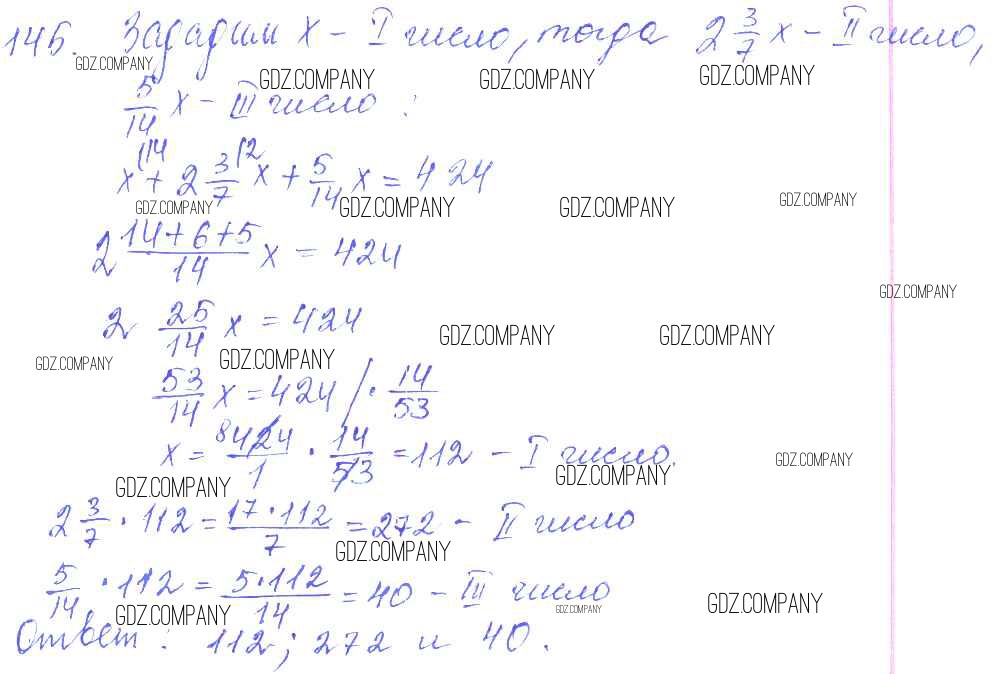 145. Зададим x – I число, тогда 2 3/7 x – II число,
GDZ.COMPANY GDZ.COMPANY GDZ.COMPANY GDZ.COMPANY
5/14 x – III число :
x |14 + 2 3/7 |2 x + 5/14 x = 424
GDZ.COMPANY GDZ.COMPANY GDZ.COMPANY GDZ.COMPANY
2 14+6+5/14 x = 424
GDZ.COMPANY
2 25/14 x = 424
GDZ.COMPANY GDZ.COMPANY
GDZ.COMPANY GDZ.COMPANY
53/14 x = 424 / · 14/53
x = 8 424/1 · 14/53 = 112 – I число.
GDZ.COMPANY GDZ.COMPANY GDZ.COMPANY
2 3/7 · 112 = 17·112/7 = 272 – II число
GDZ.COMPANY
5/14 · 112 = 5·112/14 = 40 – III число
GDZ.COMPANY GDZ.COMPANY GDZ.COMPANY
Ответ : 112; 272 и 40.